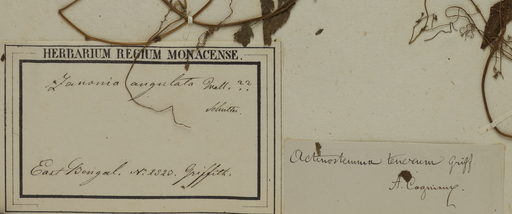 HERBARIUM REGIUM MONACENSE.
Zanonia angulata Wall. ??
East Bengal. No. 2520. Griffith.
Actinostemma tenerum Griff
A. Cogniaux.